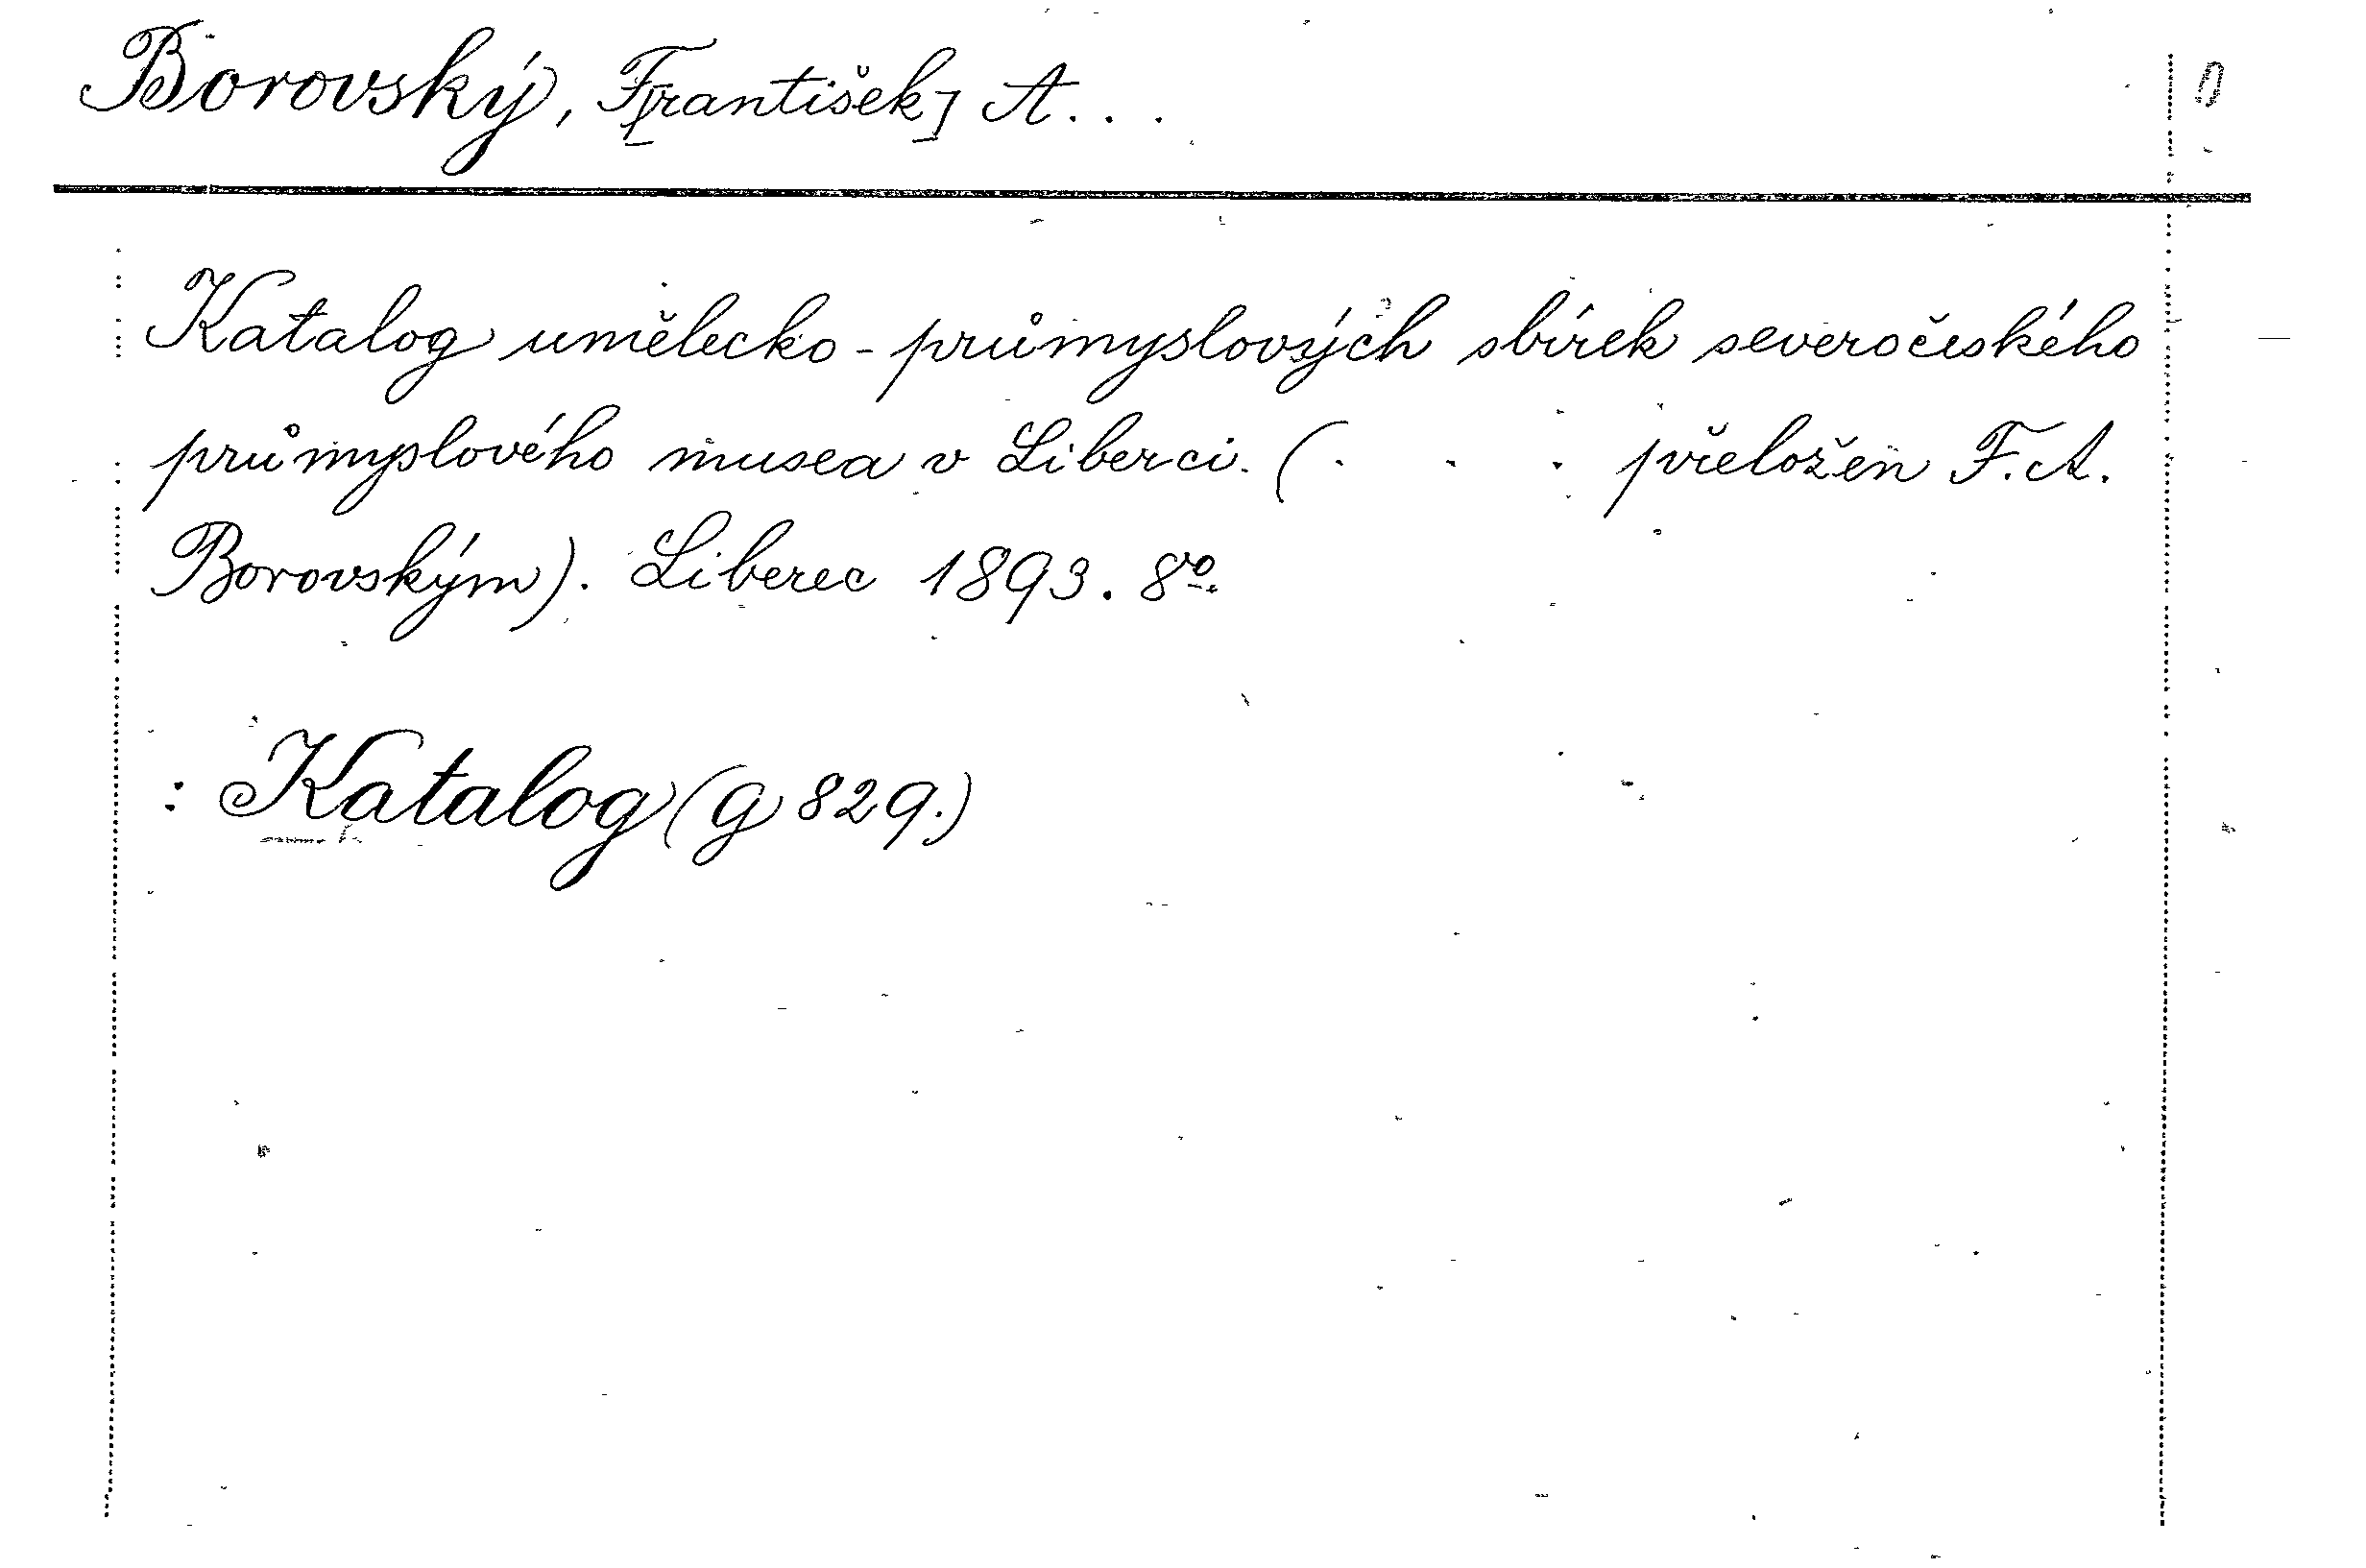 Borovský, F[rantišek] A...
Katalog umělecko-průmyslových sbírek severočeského
průmyslového musea v Liberci. (. . . přeložen F. A.
Borovským). Liberec 1893. 8º.
: Katalog (g 829.)